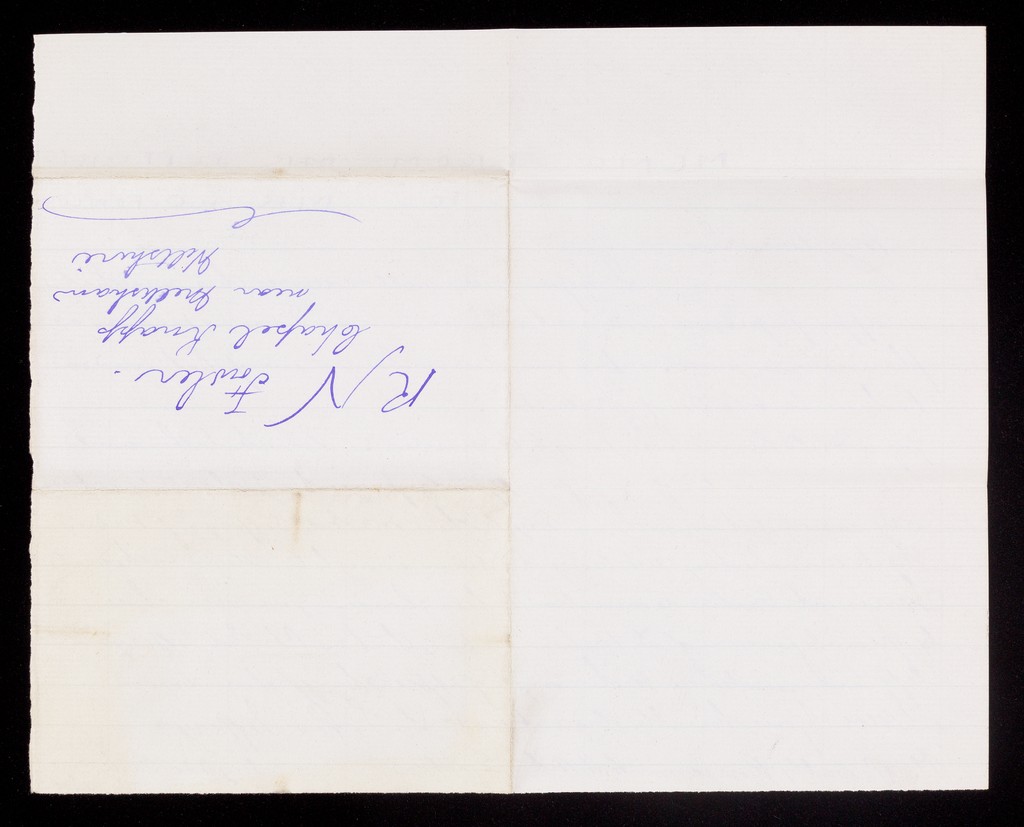 R N Fowler.
Chapel Knapp
near Melksham
Wiltshire